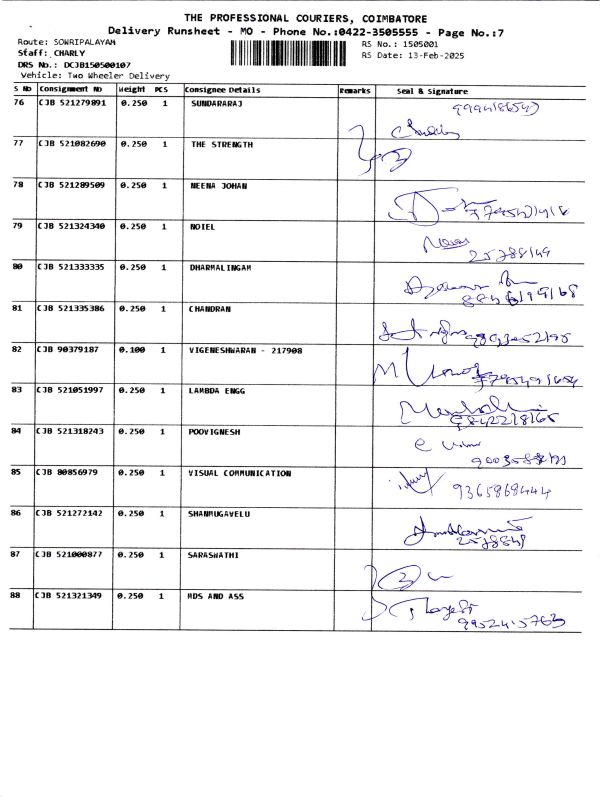 THE PROFESSIONAL COURIERS, COIMBATORE
Delivery Runsheet - MO - Phone No.:0422-3505555 - Page No.:7
Route: SOWRIPALAYAM
RS No.: 1505001
Staff: CHARLY
RS Date: 13-Feb-2025
DRS No.: DCJB150500107
Vehicle: Two Wheeler Delivery
S No Consignment No Weight PCS Consignee Details Remarks Seal & Signature
76 CJB 521279891 0.250 1 SUNDARARAJ
77 CJB 521082690 0.250 1 THE STRENGTH
78 CJB 521289509 0.250 1 NEENA JOHAN
79 CJB 521324340 0.250 1 NOIEL
25788149
80 CJB 521333335 0.250 1 DHARMALINGAM
81 CJB 521335386 0.250 1 CHANDRAN
82 CJB 90379187 0.100 1 VIGENESHWARAN - 217908
83 CJB 521051997 0.250 1 LAMBDA ENGG
84 CJB 521318243 0.250 1 POOVIGNESH
85 CJB 80856979 0.250 1 VISUAL COMMUNICATION
9365868444
86 CJB 521272142 0.250 1 SHANMUGAVELU
87 CJB 521000877 0.250 1 SARASWATHI
88 CJB 521321349 0.250 1 MDS AND ASS
9952415763